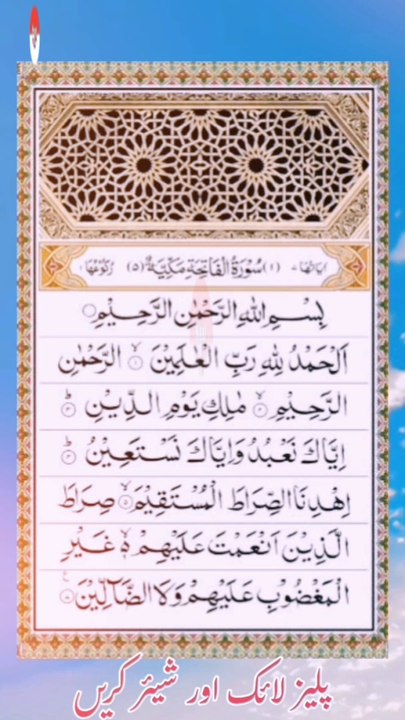 اٰیَاتُهَا ٧ (١) سُوْرَةُ الْفَاتِحَةِ مَكِّیَّةٌ (٥) رُكُوْعُهَا ١
بِسْمِ اللّٰهِ الرَّحْمٰنِ الرَّحِیْمِ
اَلْحَمْدُ لِلّٰهِ رَبِّ الْعٰلَمِیْنَ ۙ‏ ١ الرَّحْمٰنِ
الرَّحِیْمِ ۙ‏ ٢ مٰلِكِ یَوْمِ الدِّیْنِ ؕ‏ ٣
اِیَّاكَ نَعْبُدُ وَاِیَّاكَ نَسْتَعِیْنُ ؕ‏ ٤
اِهْدِنَا الصِّرَاطَ الْمُسْتَقِیْمَ ۙ‏ ٥ صِرَاطَ
الَّذِیْنَ اَنْعَمْتَ عَلَیْهِمْ ۙ۬ ٦ غَیْرِ
الْمَغْضُوْبِ عَلَیْهِمْ وَلَا الضَّآلِّیْنَ ٧
پلیز لائک اور شیئر کریں